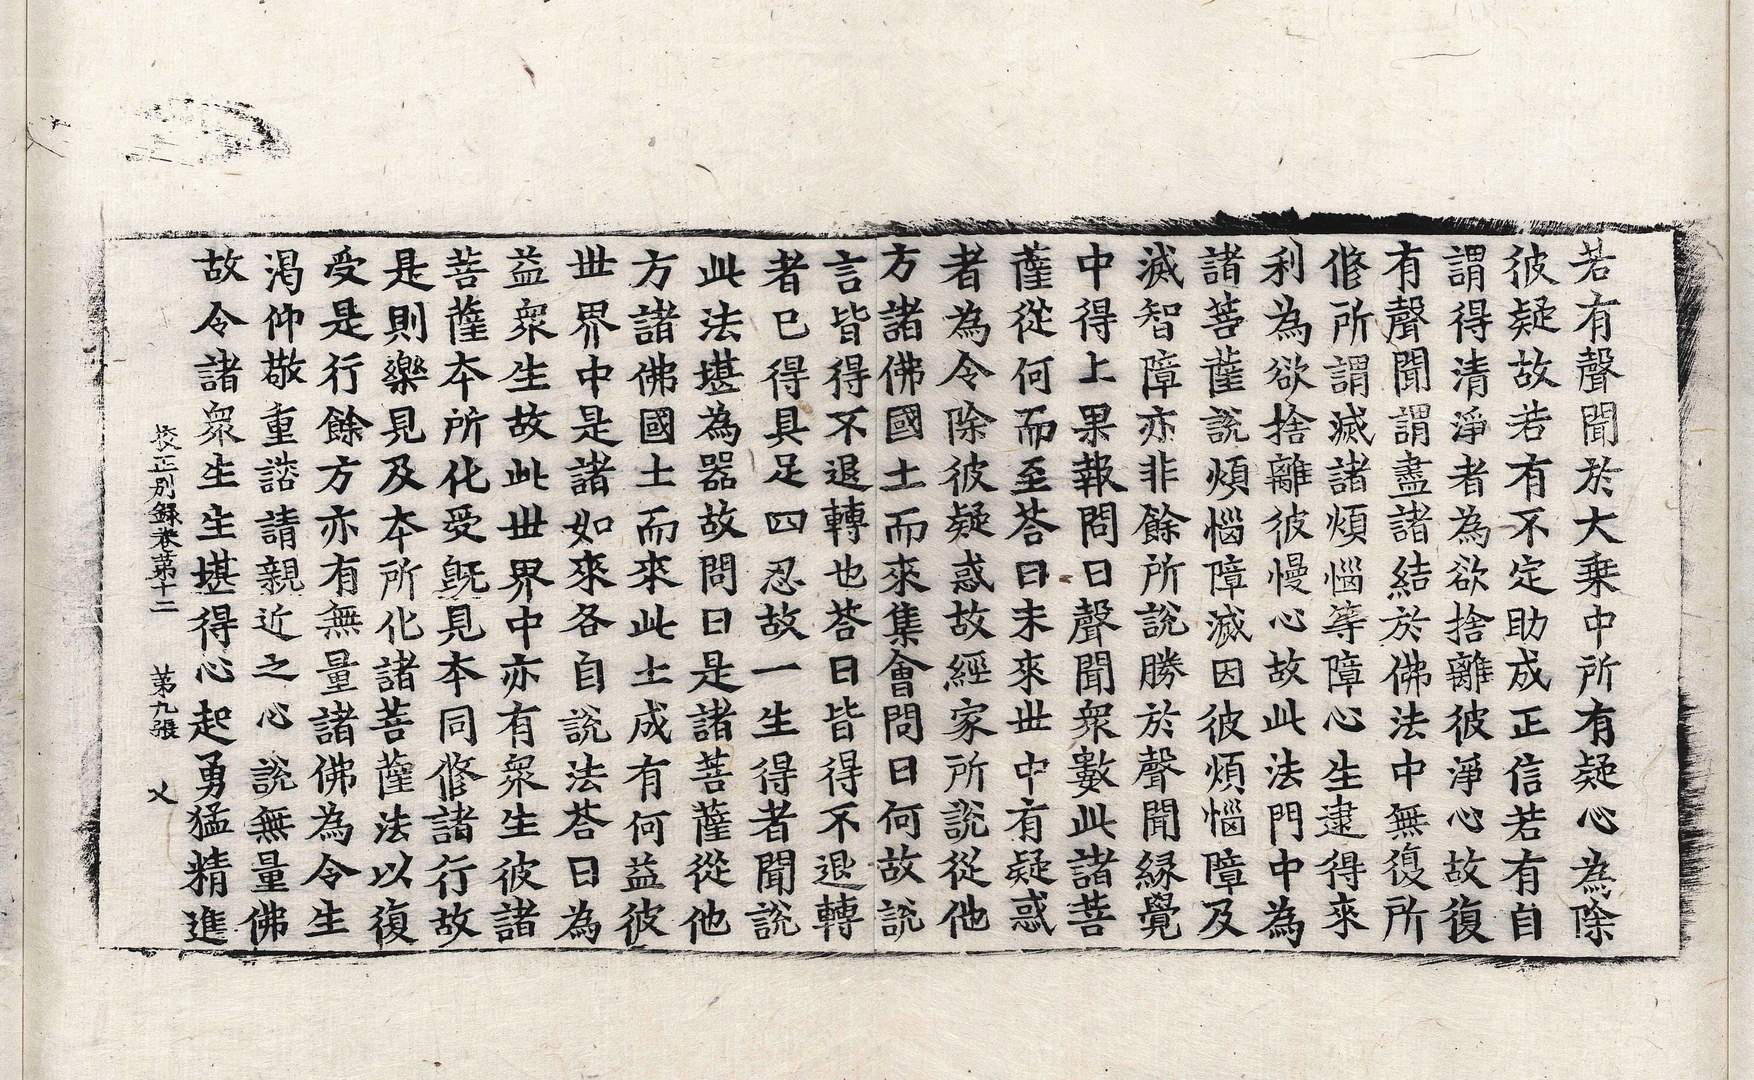 若有聲聞於大乘中所有疑心為除
彼疑故若有不定助成正信若有自
謂得清淨者為欲捨離彼淨心故復
有聲聞謂盡諸結於佛法中無復所
修所謂滅諸煩惱等障心生逮得來
利為欲捨離彼慢心故此法門中為
諸菩薩說煩惱障滅因彼煩惱障及
滅智障亦非餘所說勝於聲聞縁覺
中得上果報問曰聲聞衆數此諸菩
薩從何而至荅曰未來世中有疑惑
者為令除彼疑惑故經家所說從他
方諸佛國土而來集會問曰何故說
言皆得不退轉也荅曰皆得不退轉
者已得具足四忍故一生得者聞說
此法堪為器故問曰是諸菩薩從他
方諸佛國土而來此土成有何益彼
世界中是諸如來各自說法荅曰為
益衆生故此世界中亦有衆生彼諸
菩薩本所化受旣見本同修諸行故
是則樂見及本所化諸菩薩法以復
受是行餘方亦有無量諸佛為令生
渴仰敬重諮請親近之心說無量佛
故令諸衆生生堪得心起勇猛精進
校正別錄卷苐十二 苐九張 乂